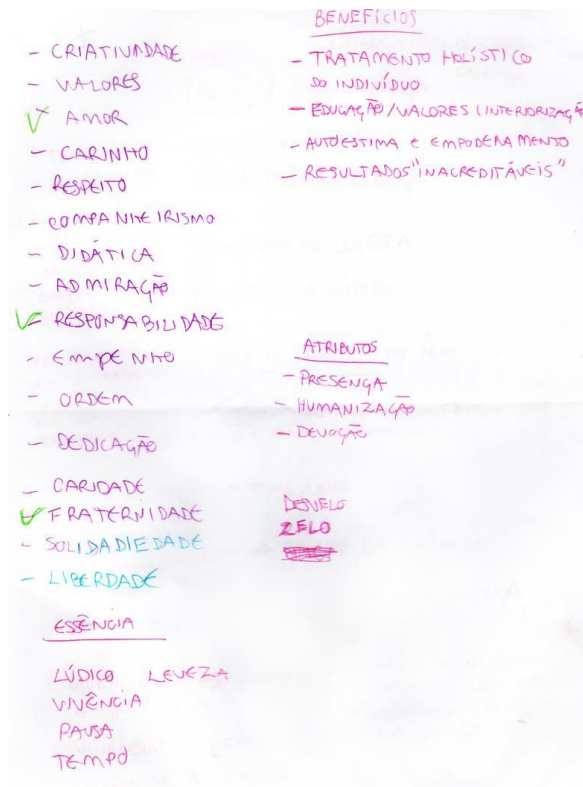 - CRIATIVIDADE
- VALORES
- AMOR
- CARINHO
- RESPEITO
- COMPANHEIRISMO
- DIDÁTICA
- ADMIRAÇÃO
- RESPONSABILIDADE
- EMPENHO
- ORDEM
- DEDICAÇÃO
- CARIDADE
- FRATERNIDADE
- SOLIDADIEDADE
- LIBERDADE
ESSÊNCIA
LÚDICO LEVEZA
VIVÊNCIA
PAUSA
TEMPO
BENEFÍCIOS
- TRATAMENTO HOLÍSTICO
DO INDIVÍDUO
- EDUCAÇÃO/VALORES (INTERIORIZAÇÃ
- AUTOESTIMA E EMPODERAMENTO
- RESULTADOS "INACREDITÁVEIS"
ATRIBUTOS
- PRESENÇA
- HUMANIZAÇÃO
- DEVOÇÃO
DESVELO
ZELO